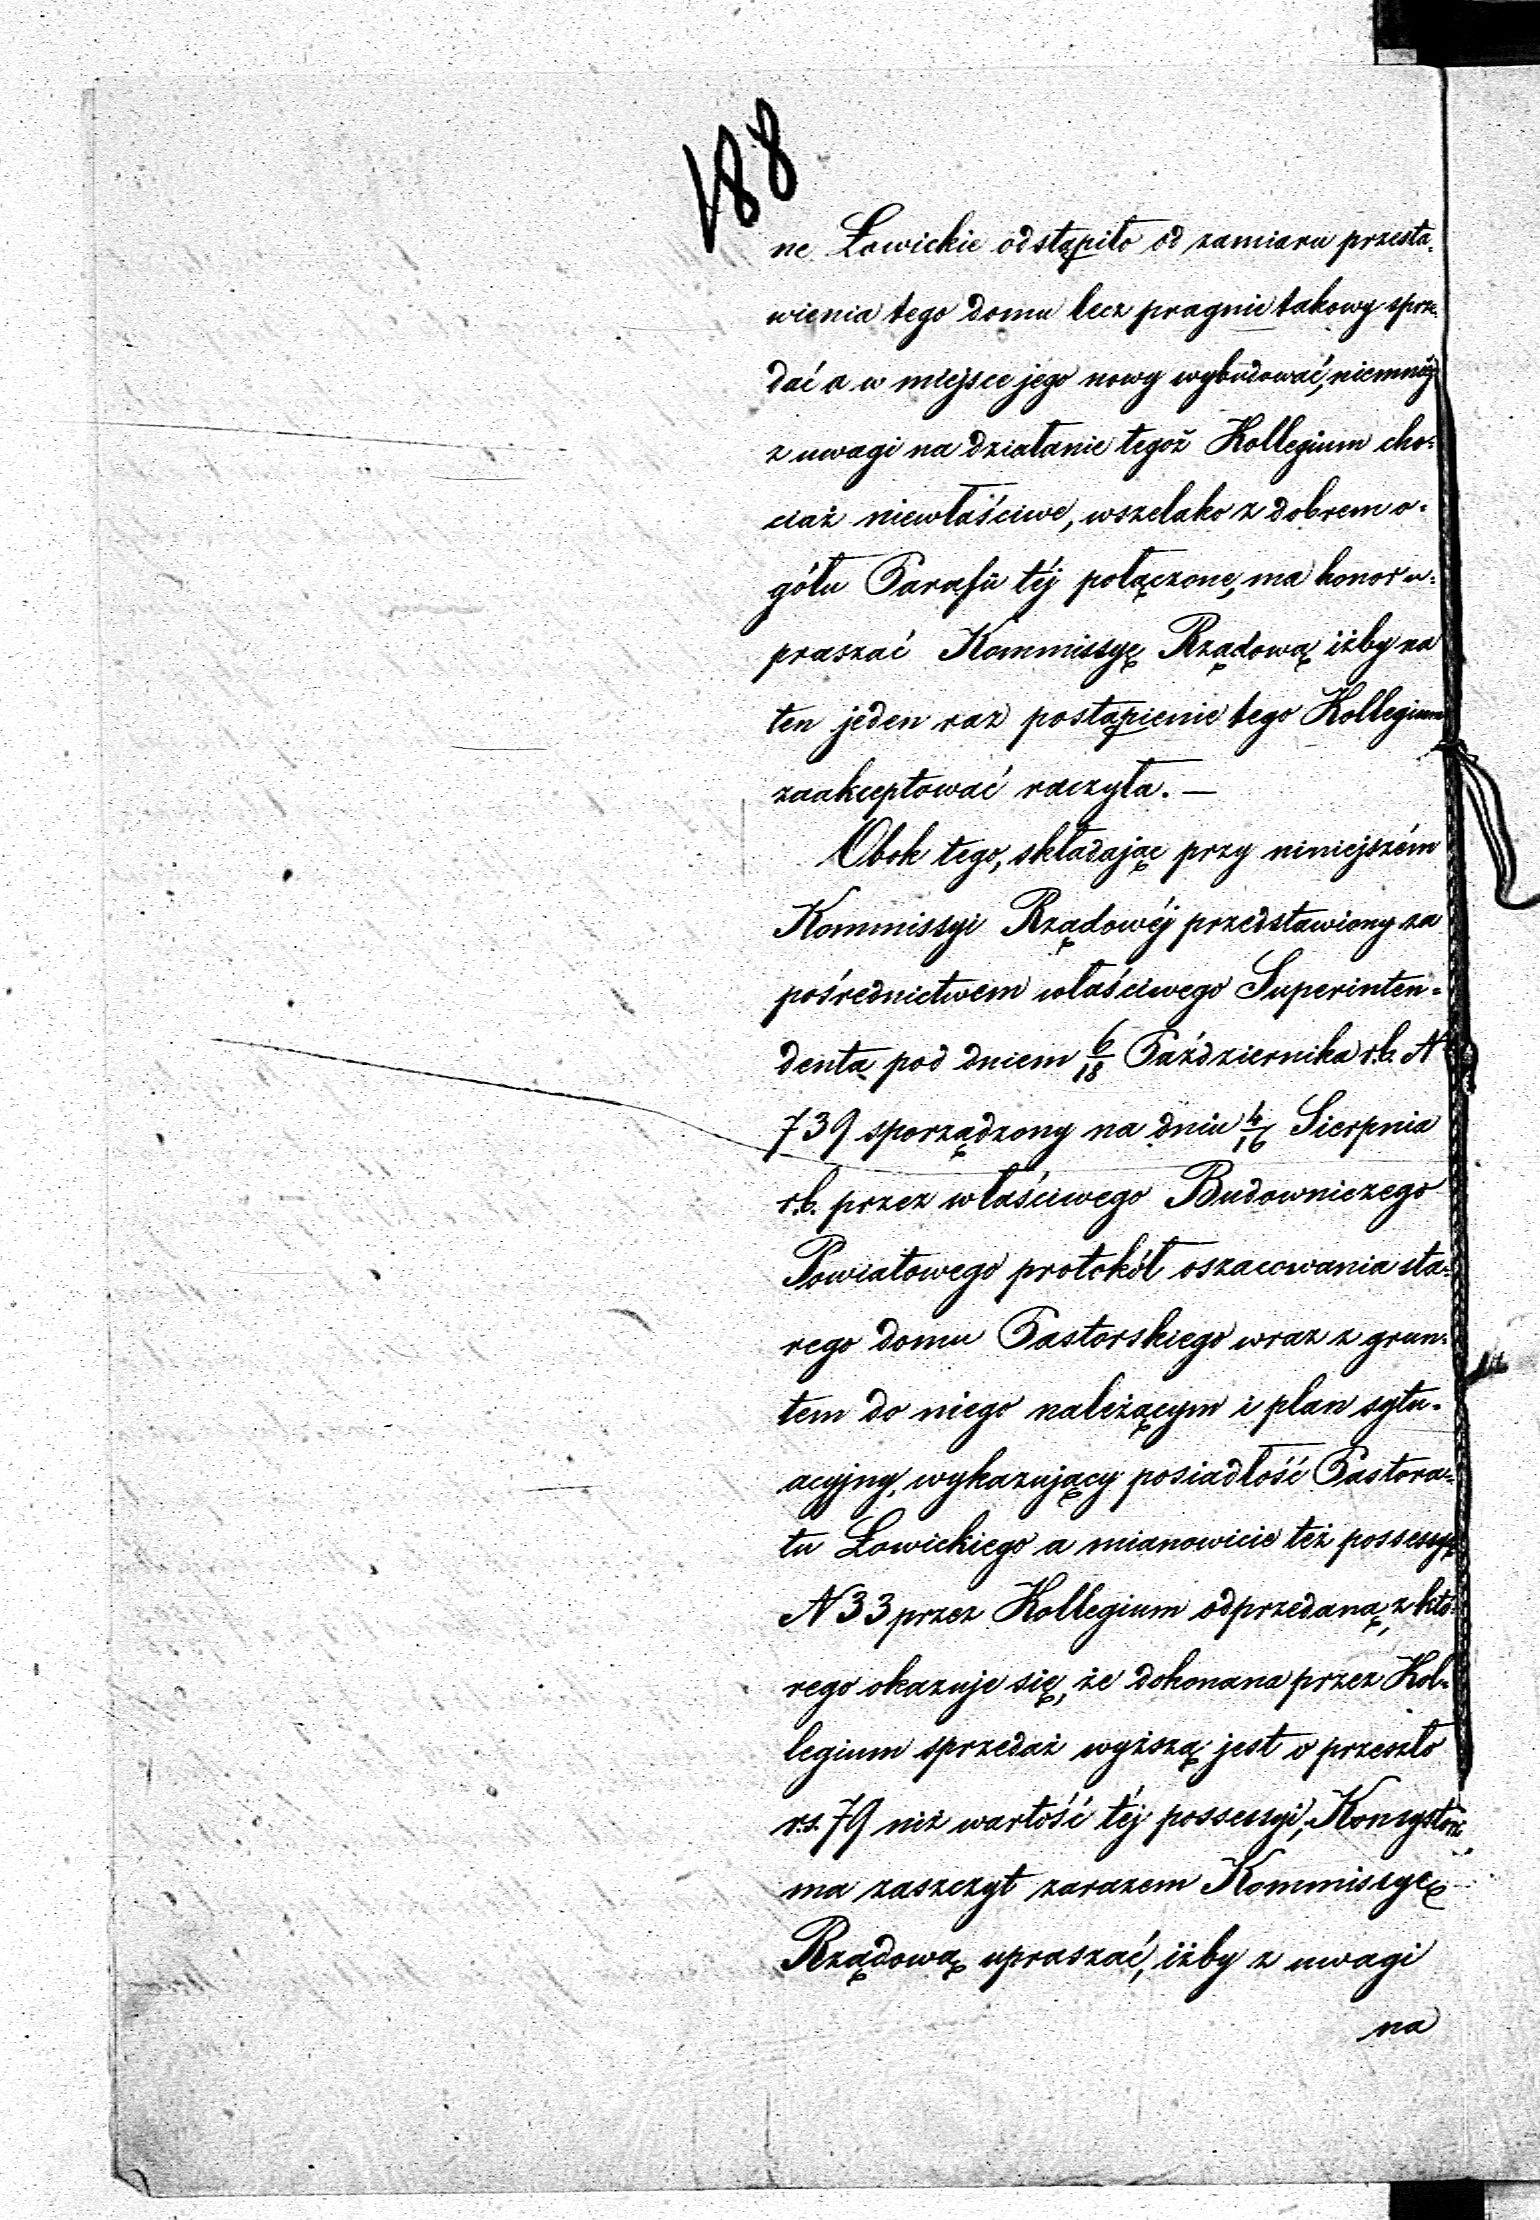 188
ne Łowickie odstąpiło od zamiaru przesta-
wienia tego domu lecz pragnie takowy sprze-
dać a w miejsce jego nowy wybudować, niemniéj
z uwagi na działanie tegoż Kollegium cho-
ciaż niewłaściwe, wszelako z dobrem o-
gółu Parafii téj połączone, ma honor u-
praszać Kommissyę Rządową iżby na
ten jeden raz postąpienie tego Kollegium
zaakceptować raczyła. —
Obok tego, składając przy niniejszém
Kommissyi Rządowéj przedstawiony za
pośrednictwem właściwego Superinten-
denta pod dniem 6/18 Października r.b. N
739 sporządzony na dniu 4/16 Sierpnia
r.b. przez właściwego Budowniczego
Powiatowego protokół oszacowania sta-
rego domu Pastorskiego wraz z grun-
tem do niego należącym i plan sytu-
acyjny, wykazujący posiadłość Pastora-
tu Łowickiego a mianowicie też possessyę
N 33 przez Kollegium odprzedaną, z któ-
rego okazuje się, że dokonana przez Kol-
legium sprzedaż wyższą jest o przeszło
r.s. 79 niż wartość téj possessyi, Konsystorz
ma zaszczyt zarazem Kommissyę
Rządową upraszać, iżby z uwagi
na